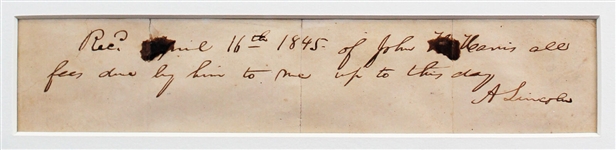 Recd April 16th 1845. of John H. Harris all
fees due by him to me up to this day
A Lincoln